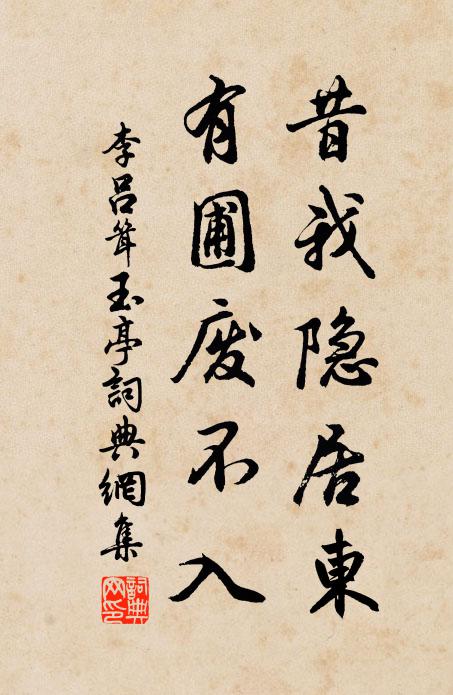 昔我隐居東
有圃废不入
李吕耸玉亭詞典網集
詞典网印